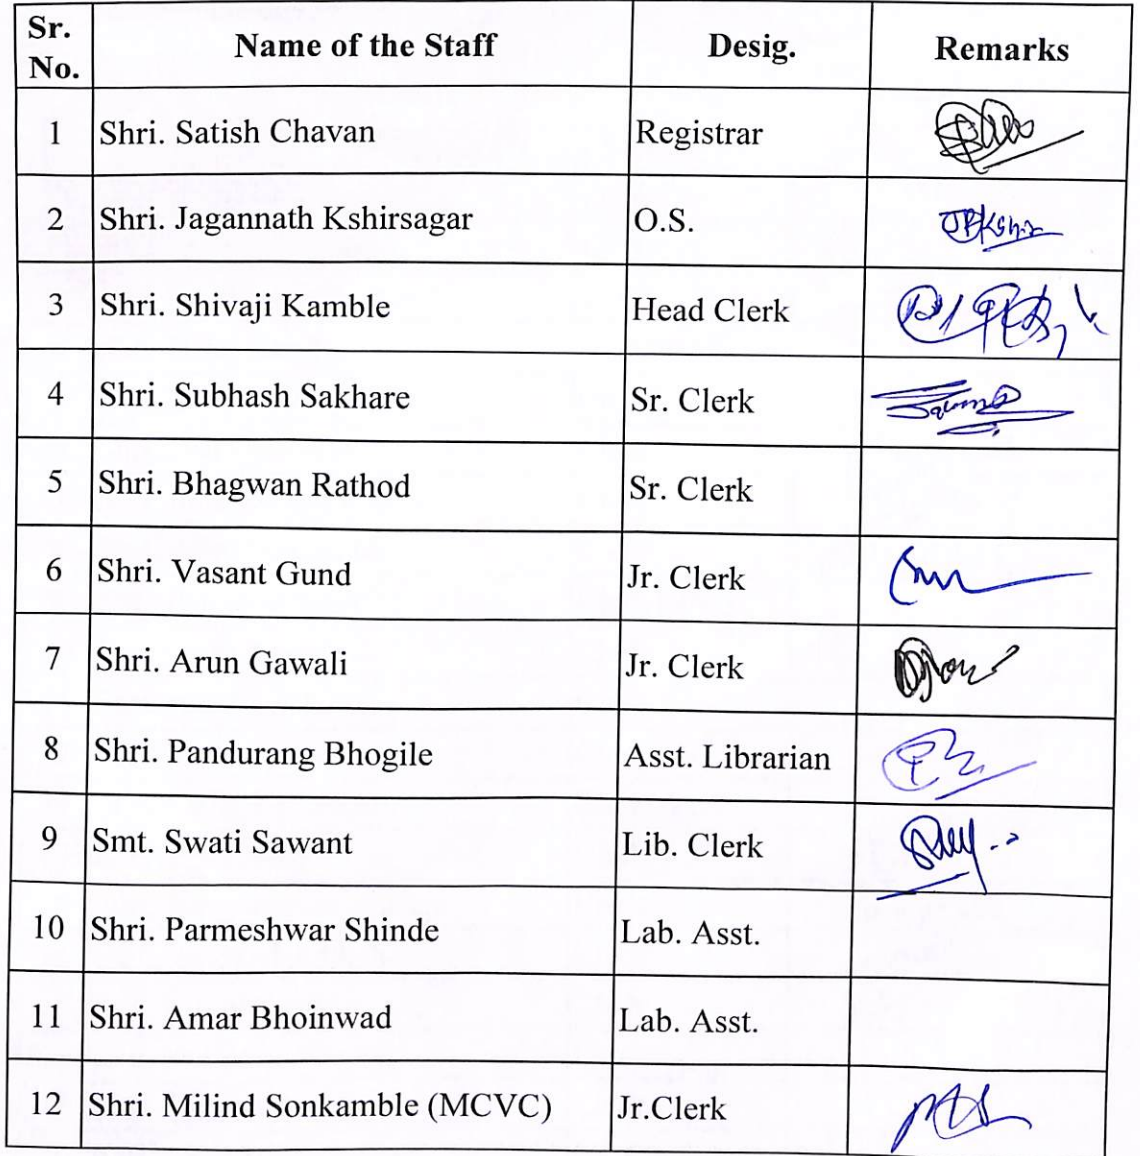 Sr. No. Name of the Staff Desig. Remarks
1 Shri. Satish Chavan Registrar
2 Shri. Jagannath Kshirsagar O.S.
3 Shri. Shivaji Kamble Head Clerk
4 Shri. Subhash Sakhare Sr. Clerk
5 Shri. Bhagwan Rathod Sr. Clerk
6 Shri. Vasant Gund Jr. Clerk
7 Shri. Arun Gawali Jr. Clerk
8 Shri. Pandurang Bhogile Asst. Librarian
9 Smt. Swati Sawant Lib. Clerk
10 Shri. Parmeshwar Shinde Lab. Asst.
11 Shri. Amar Bhoinwad Lab. Asst.
12 Shri. Milind Sonkamble (MCVC) Jr.Clerk